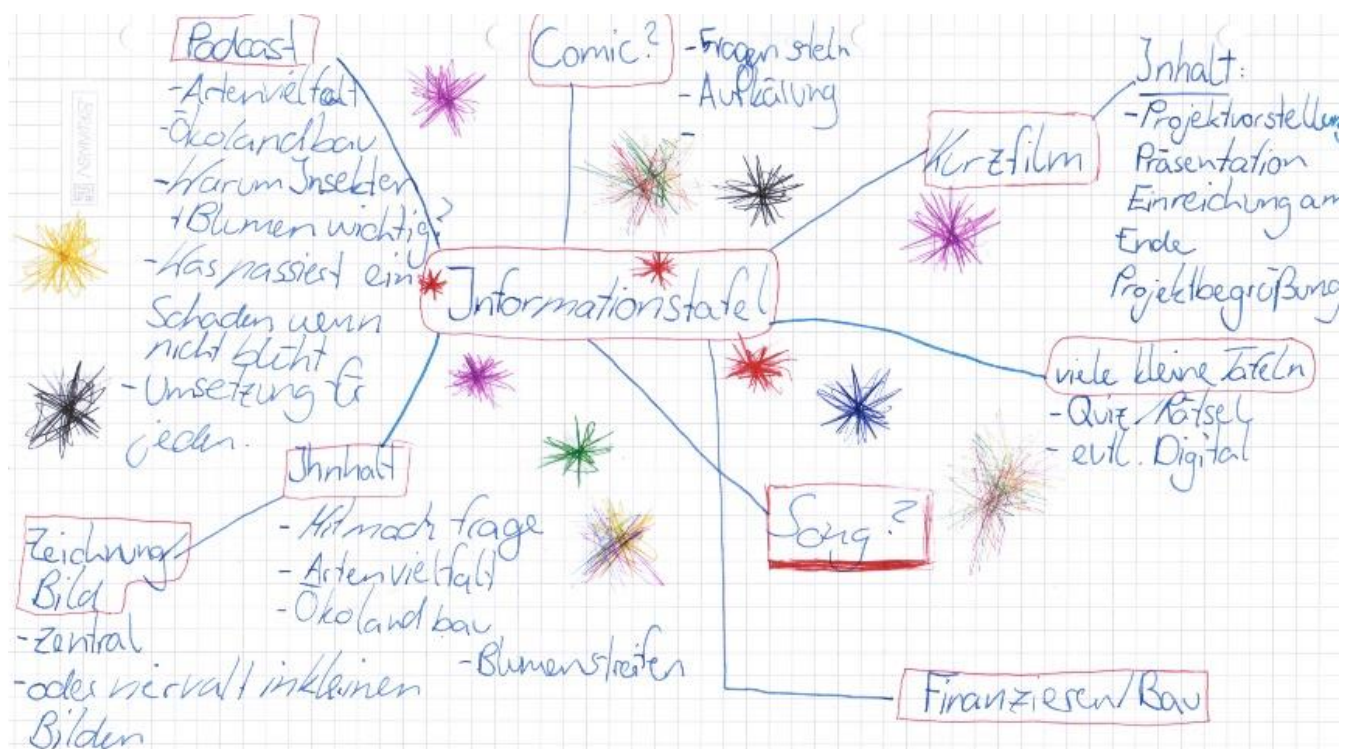 Podcast
-Artenvielfalt
-Ökolandbau
-Warum Insekten
+Blumen wichtig?
-Was passiert ein
Schaden wenn
nicht blüht
-Umsetzung
jeden.
Comic?
-Fragen steln
-Aufkälung
-
Kurzfilm
Inhalt:
-Projektvorstellung
Präsentation
Einreichung am
Ende
Projektbegrüßung
Informationstafel
viele kleine Tafeln
-Quiz/Rätsel
-evtl. Digital
Ihnhalt
-Mitmach frage
-Artenvielfalt
-Ökolandbau
-Blumenstreifen
Zeichnung/
Bild
-Zentral
-oder inkleinen
Bilden
Song?
Finanzieren/Bau